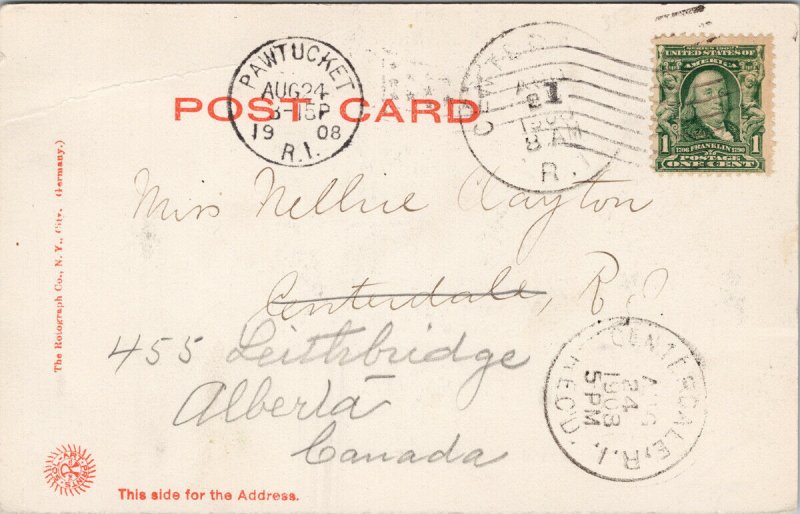 PAWTUCKET
AUG 24
3-15P
19 08
R.I.
POST CARD
8 AM
R.I.
UNITED STATES OF
AMERICA
1 1706 FRANKLIN 1790 1
POSTAGE
ONE CENT
Miss Nellie Clayton
Centerdale, R I
455 Leithbridge
Alberta
Canada
CENTERDALE, R.I.
AUG
24
1908
5PM
REC'D
The Rotograph Co., N. Y., City. (Germany.)
This side for the Address.